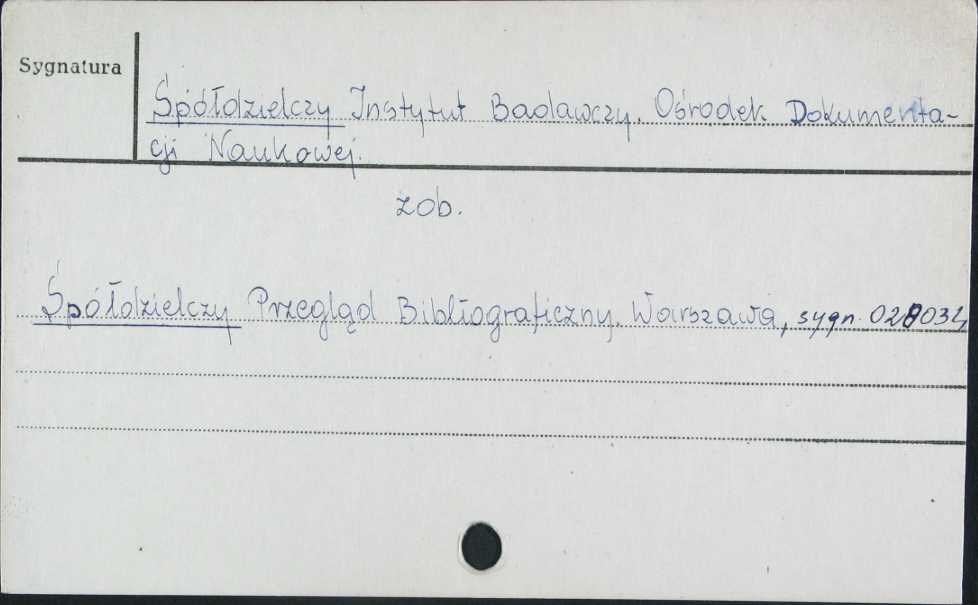 Sygnatura
Spółdzielczy Instytut Badawczy. Ośrodek Dokumenta-
cji Naukowej.
zob.
Spółdzielczy Przegląd Bibliograficzny. Warszawa, sygn. 028034